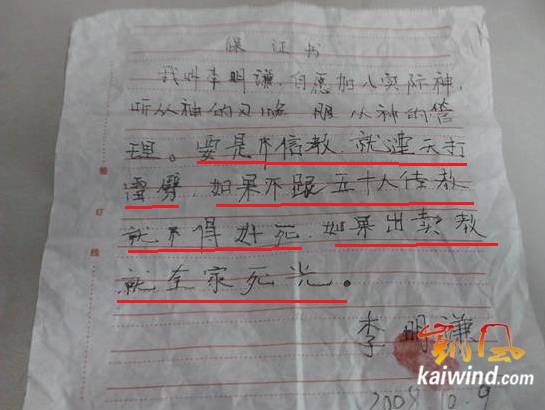 保证书
我叫李明谦,自愿加入实际神,
听从神的召唤 服从神的管
理。要是不信教 就遭天打
雷劈.如果不跟五十人传教
就不得好死.如果出卖教
就全家死光。
李明谦
凯风
kaiwind.com
装
订
线